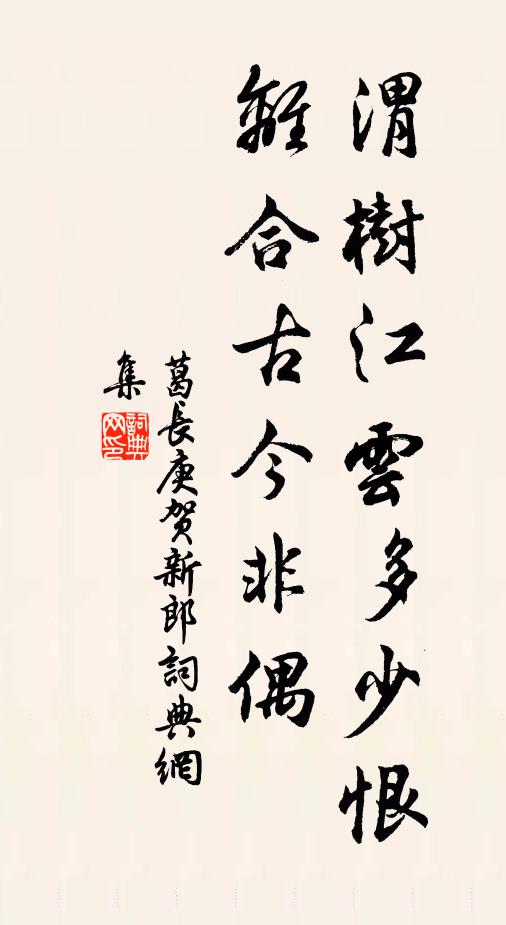 渭樹江雲多少恨
離合古今非偶
葛長庚賀新郎詞典網
集
詞典
网印